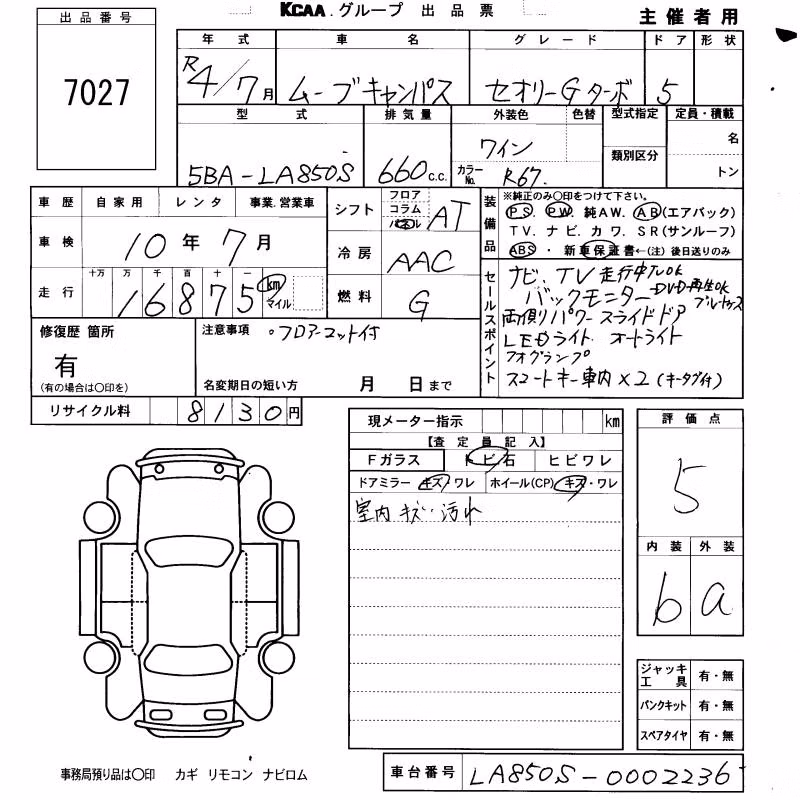 KCAA.グループ 出品票
主催者用
出品番号
7027
年式 車名 グレード ドア 形状
R4/7月 ムーブキャンバス セオリーGターボ 5
型式 排気量 外装色 色替 型式指定 定員・積載
名
類別区分
トン
5BA-LA850S 660c.c. ワイン
カラーNo. R67.
車歴 自家用 レンタ 事業.営業車
車検 10年7月
走行 十万 万 千 百 十 一
16875 km マイル
シフト フロア コラム パネル AT
冷房 AAC
燃料 G
装備品
※純正のみ〇印をつけて下さい。
PS. PW. 純AW. AB(エアバック)
TV. ナビ. カワ. SR(サンルーフ)
ABS・新車保証書←(注)後日送りのみ
セールスポイント
ナビ、TV 走行中TVOK
DVD再生OK
バックモニター ブルートゥース
両側パワースライドドア
LEDライト オートライト
フォグランプ
スマートキー車内×2(キータグ付)
修復歴 箇所
有
(有の場合は〇印を)
注意事項 ・フロアーマット付
名変期日の短い方 月 日まで
リサイクル料 8130円
現メーター指示 km
【査定員記入】
Fガラス トビ石 ヒビワレ
ドアミラー キズ・ワレ ホイール(CP) キズ・ワレ
室内キズ・汚れ
評価点
5
内装 外装
b a
ジャッキ工具 有・無
パンクキット 有・無
スペアタイヤ 有・無
事務局預り品は〇印 カギ リモコン ナビロム
車台番号 LA850S-0002236